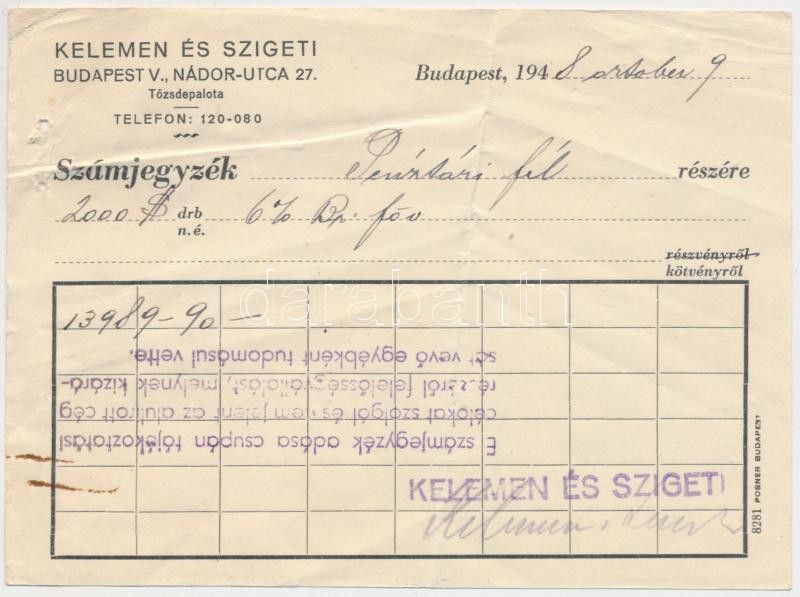 KELEMEN ÉS SZIGETI
BUDAPEST V., NÁDOR-UTCA 27.
Tőzsdepalota
TELEFON: 120-080
Budapest, 194 8 october 9
Számjegyzék Pénztári fél részére
2000 $ drb n.é. 6% Bp. főv
részvényről
kötvényről
13989-90-
E számjegyzék adása csupán tájékoztatási
célokat szolgál és nem jelent az alulirott cég
részéről felelősségvállalást, melynek kizárá-
sát vevő egyébként tudomásul vette.
KELEMEN ÉS SZIGETI
Kelemen
8281 POSNER BUDAPEST
darabanth